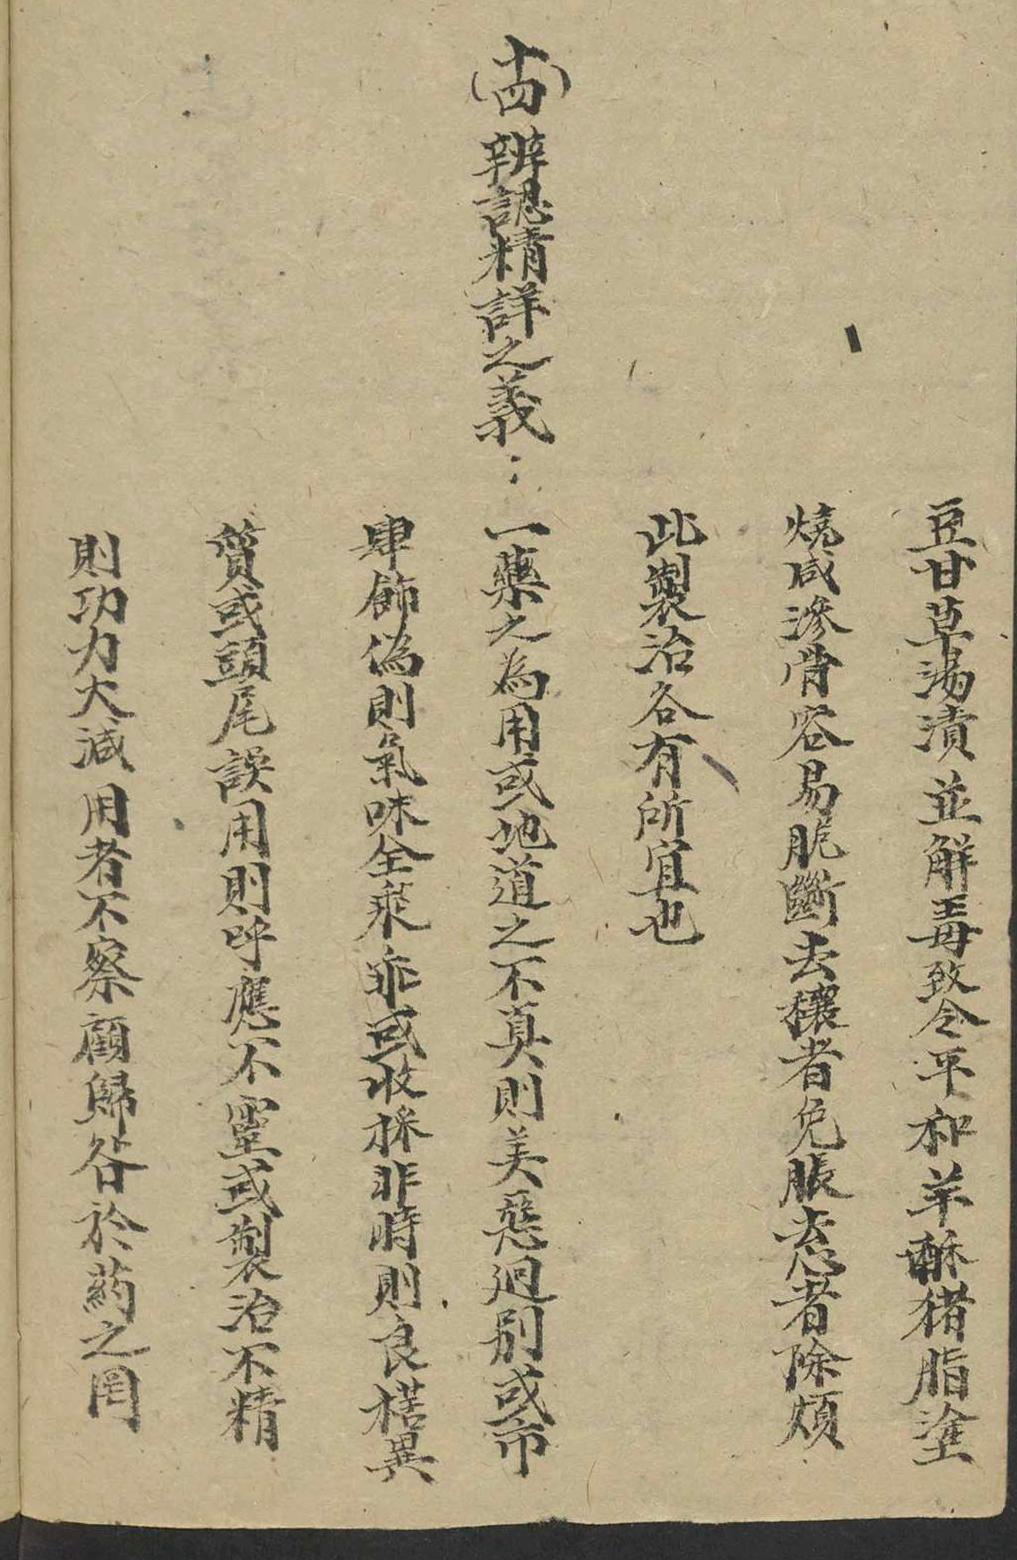 豆甘草湯漬並解毒致令平和羊酥猪脂塗
燒咸滲骨容易脆斷去穰者免脹去心者除煩
此製治各有所宜也
(十四)辨認精詳之義：一藥之為用或地道之不真則美惡迥別或市
肆飾偽則氣味全乖乖或收採非時則良楛異
質或頭尾誤用則呼應不靈或製治不精
則功力大減用者不察顧歸咎於药之罔